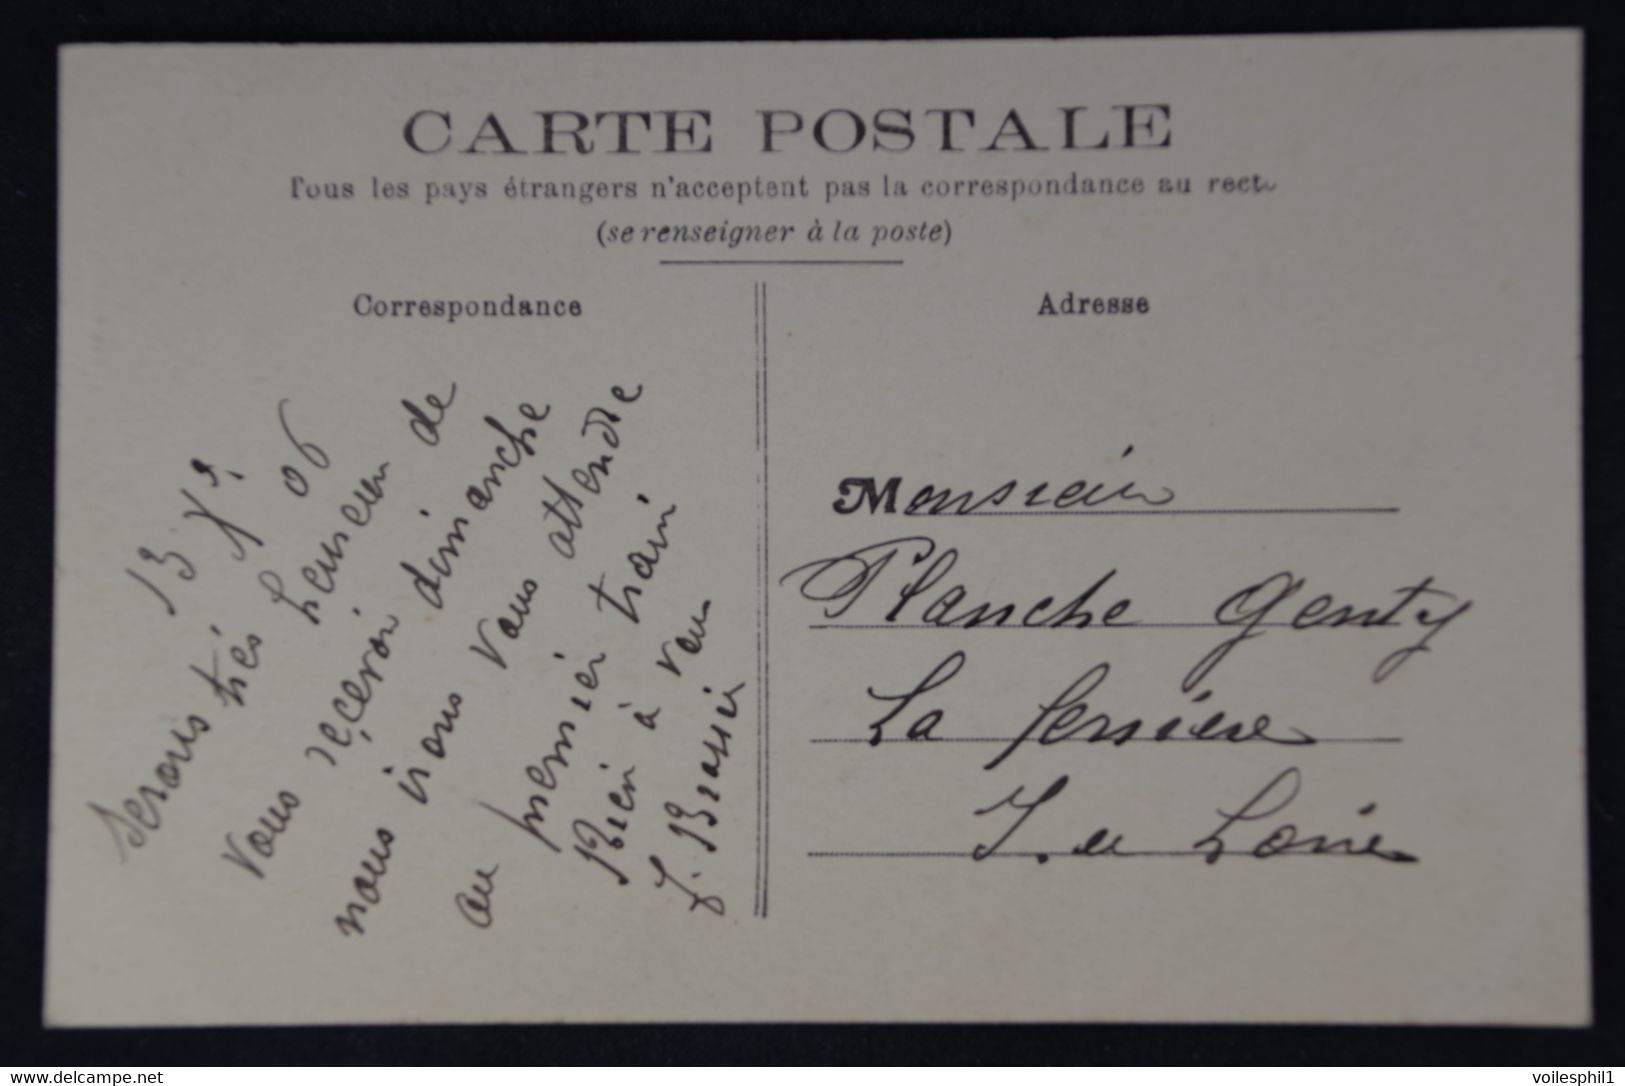 CARTE POSTALE
Tous les pays étrangers n'acceptent pas la correspondance au recto
(se renseigner à la poste)
Correspondance
Adresse
13 06
Serons très heureux de
vous reçevoir dimanche
nous irons vous attendre
au premier train
Bien à vous
J. Brassier
Monsieur
Planche Genty
La ferrière
I. et Loire
Delcampe.net
voilesphil1